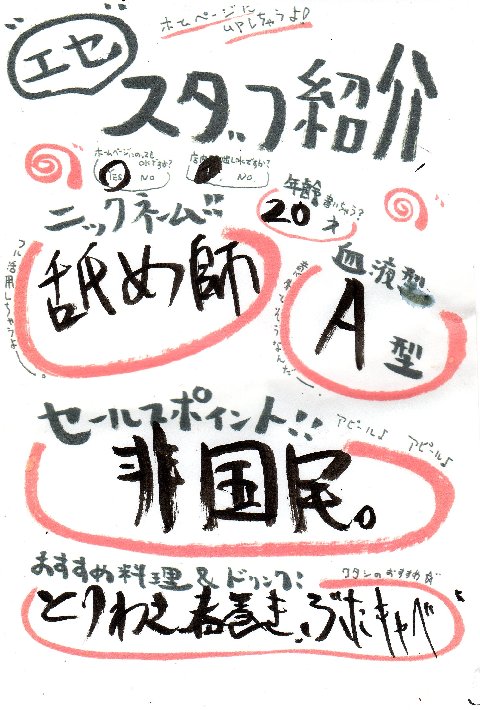 ホームページに
UPしちゃうよ!
エセ
スタッフ紹介
ホームページにのっても
OKですか?
YES NO
NO
年齢書いちゃう?
20才
ニックネーム!!
舐め師
フル活用しちゃうよー。
血液型
A型
セールスポイント!!
アピール♪ アピール♪
非国民。
おすすめ料理&ドリンク:
ワタシのおすすめ☆
とりわさ春巻き、ぶたキャベ